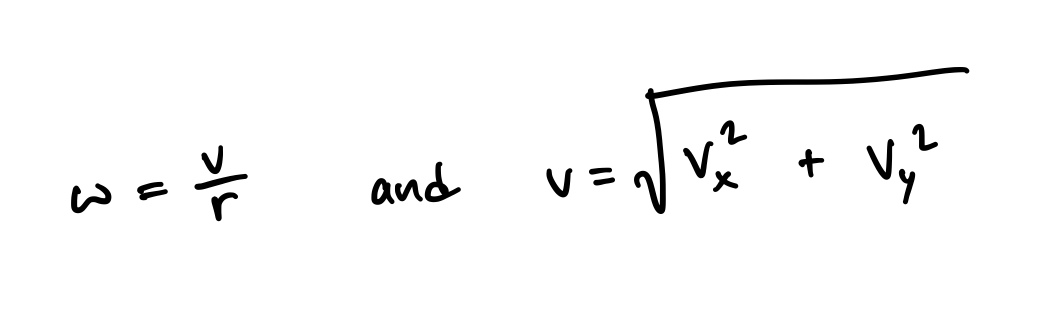 ω = v/r and v = √(v_x^2 + v_y^2)